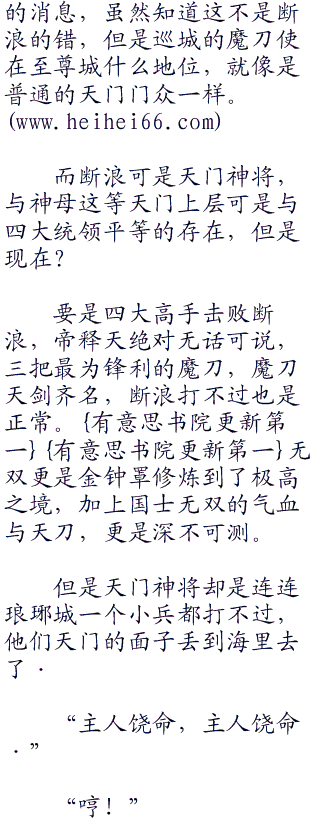 的消息，虽然知道这不是断
浪的错，但是巡城的魔刀使
在至尊城什么地位，就像是
普通的天门门众一样。
(www.heihei66.com)
而断浪可是天门神将，
与神母这等天门上层可是与
四大统领平等的存在，但是
现在？
要是四大高手击败断
浪，帝释天绝对无话可说，
三把最为锋利的魔刀，魔刀
天剑齐名，断浪打不过也是
正常。{有意思书院更新第
一}{有意思书院更新第一}无
双更是金钟罩修炼到了极高
之境，加上国士无双的气血
与天刀，更是深不可测。
但是天门神将却是连连
琅琊城一个小兵都打不过，
他们天门的面子丢到海里去
了．
“主人饶命，主人饶命
．”
“哼！”